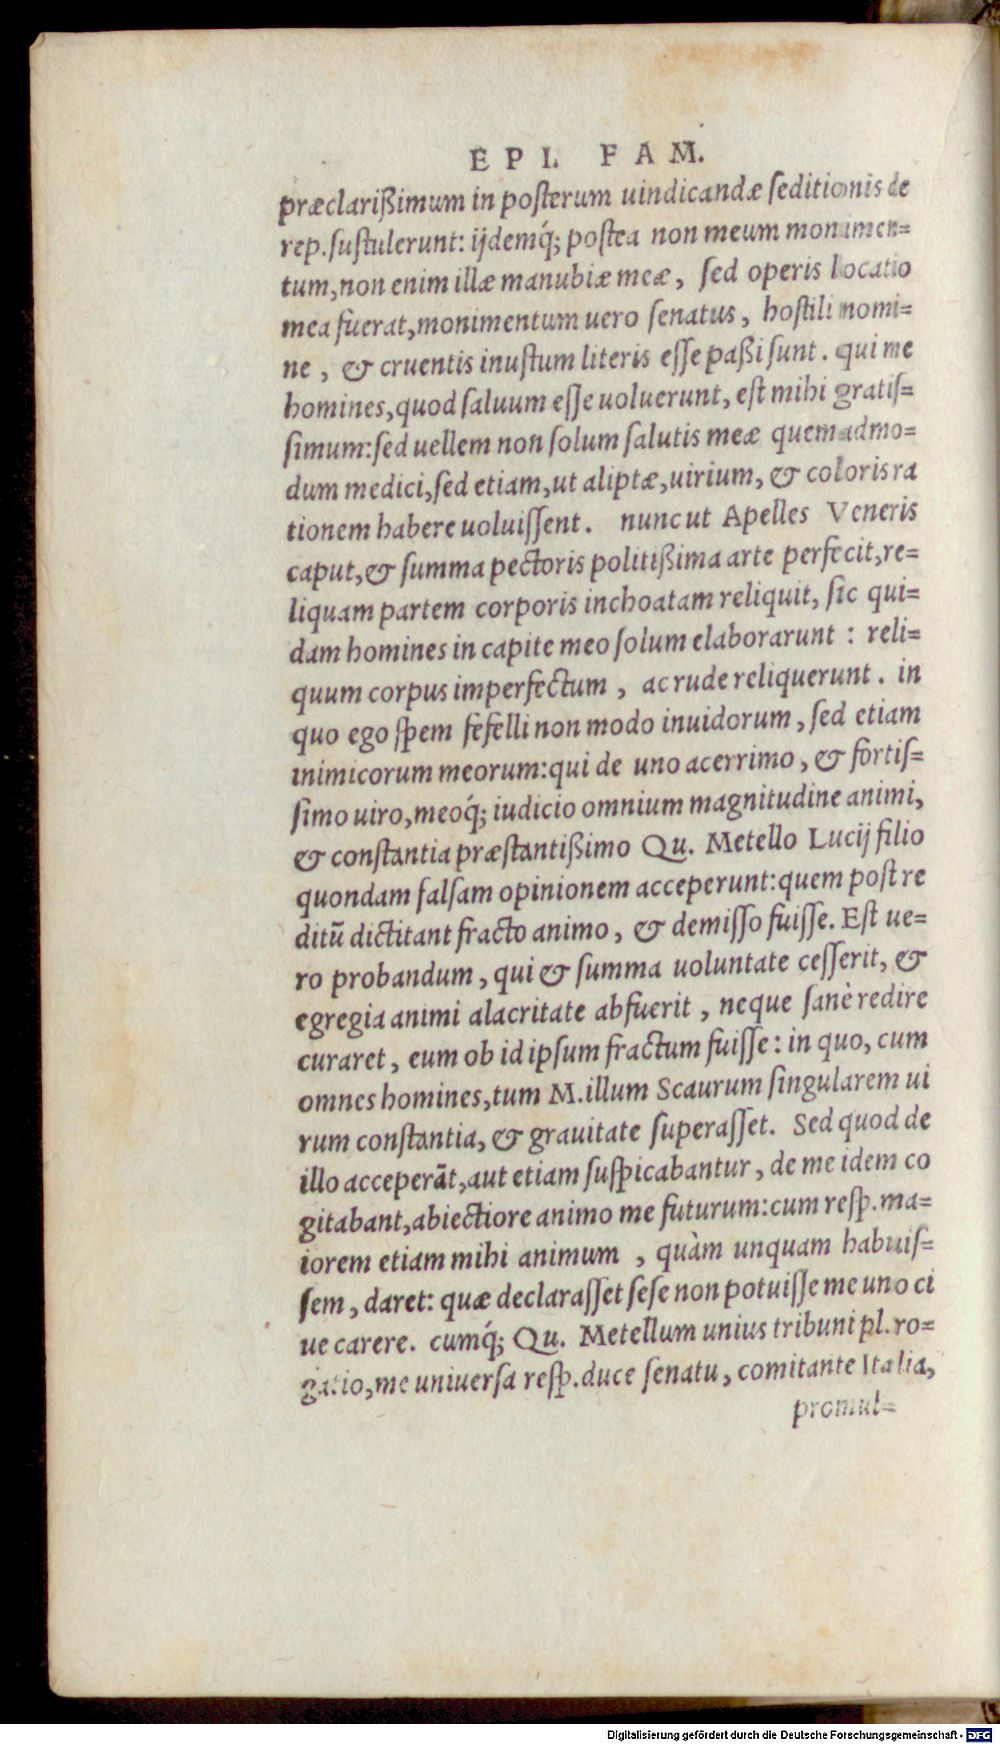 EPI. FAM.
præclarißimum in posterum uindicandæ seditionis de
rep. sustulerunt: ijdemq́; postea non meum monimen=
tum, non enim illæ manubiæ meæ, sed operis locatio
mea fuerat, monimentum uero senatus, hostili nomi=
ne, & cruentis inustum literis esse paßi sunt. qui me
homines, quod saluum esse uoluerunt, est mihi gratis=
simum: sed uellem non solum salutis meæ quemadmo=
dum medici, sed etiam, ut aliptæ, uirium, & coloris ra
tionem habere uoluissent. nunc ut Apelles Veneris
caput, & summa pectoris politißima arte perfecit, re=
liquam partem corporis inchoatam reliquit, sic qui=
dam homines in capite meo solum elaborarunt: reli=
quum corpus imperfectum, ac rude reliquerunt. in
quo ego spem fefelli non modo inuidorum, sed etiam
inimicorum meorum: qui de uno acerrimo, & fortis=
simo uiro, meoq́; iudicio omnium magnitudine animi,
& constantia præstantißimo Qu. Metello Lucij filio
quondam falsam opinionem acceperunt: quem post re
ditũ dictitant fracto animo, & demisso fuisse. Est ue=
ro probandum, qui & summa uoluntate cesserit, &
egregia animi alacritate abfuerit, neque sanè redire
curaret, eum ob id ipsum fractum fuisse: in quo, cum
omnes homines, tum M. illum Scaurum singularem ui
rum constantia, & grauitate superasset. Sed quod de
illo acceperãt, aut etiam suspicabantur, de me idem co
gitabant, abiectiore animo me futurum: cum resp. ma=
iorem etiam mihi animum, quàm unquam habuis=
sem, daret: quæ declarasset sese non potuisse me uno ci
ue carere. cumq́; Qu. Metellum unius tribuni pl. ro=
gatio, me uniuersa resp. duce senatu, comitante Italia,
promul=
Digitalisierung gefördert durch die Deutsche Forschungsgemeinschaft - DFG